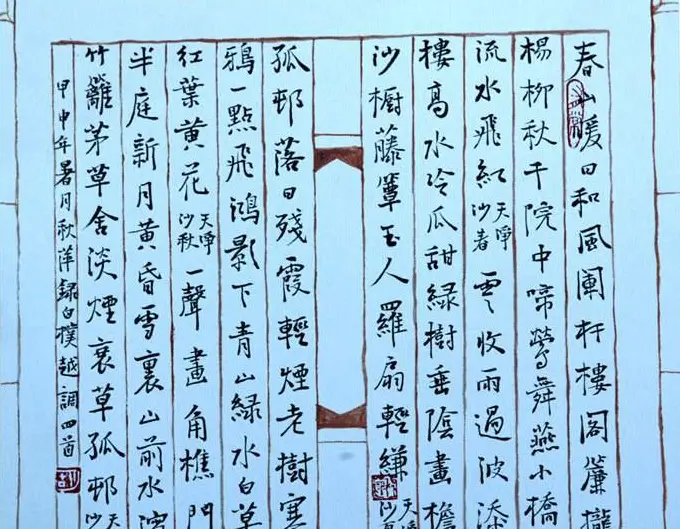 春山暖日和風闌杆樓閣簾櫳
楊柳秋千院中啼鶯舞燕小橋
流水飛紅天淨沙春雲收雨過波添
樓高水冷瓜甜綠樹垂陰畫檐
沙櫥藤簟玉人羅扇輕縑天淨沙
孤邨落日殘霞輕煙老樹寒
鴉一點飛鴻影下青山綠水白草
紅葉黃花天淨沙秋一聲畫角樵門
半庭新月黃昏雪裏山前水濱
竹籬茅草舍淡煙衰草孤邨天淨沙
甲申年暑月秋萍録白樸越調四首